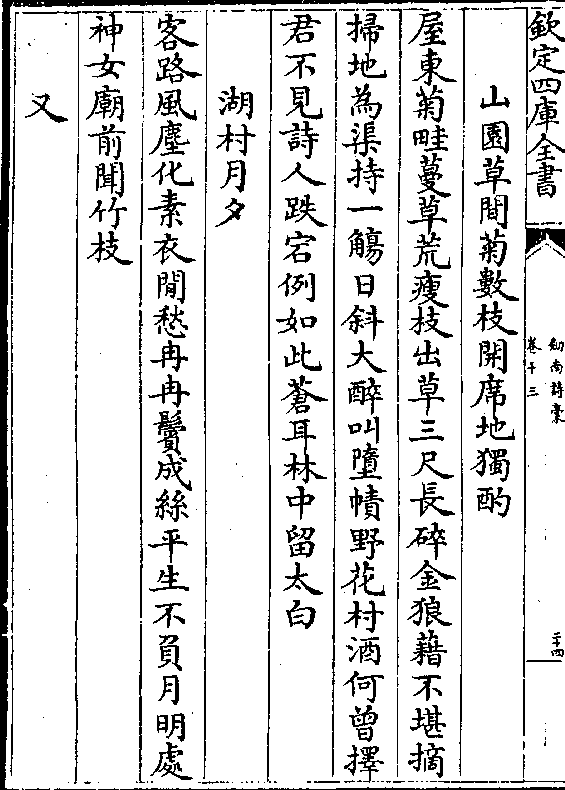 欽定四庫全書
劍南詩稾
卷十三
二十四
山園草間菊數枝開席地獨酌
屋東菊畦蔓草荒瘦枝出草三尺長碎金狼藉不堪摘
掃地為渠持一觴日斜大醉叫墮幘野花村酒何曾擇
君不見詩人跌宕例如此蒼耳林中留太白
湖村月夕
客路風塵化素衣閒愁冉冉鬢成絲平生不負月明處
神女廟前聞竹枝
又